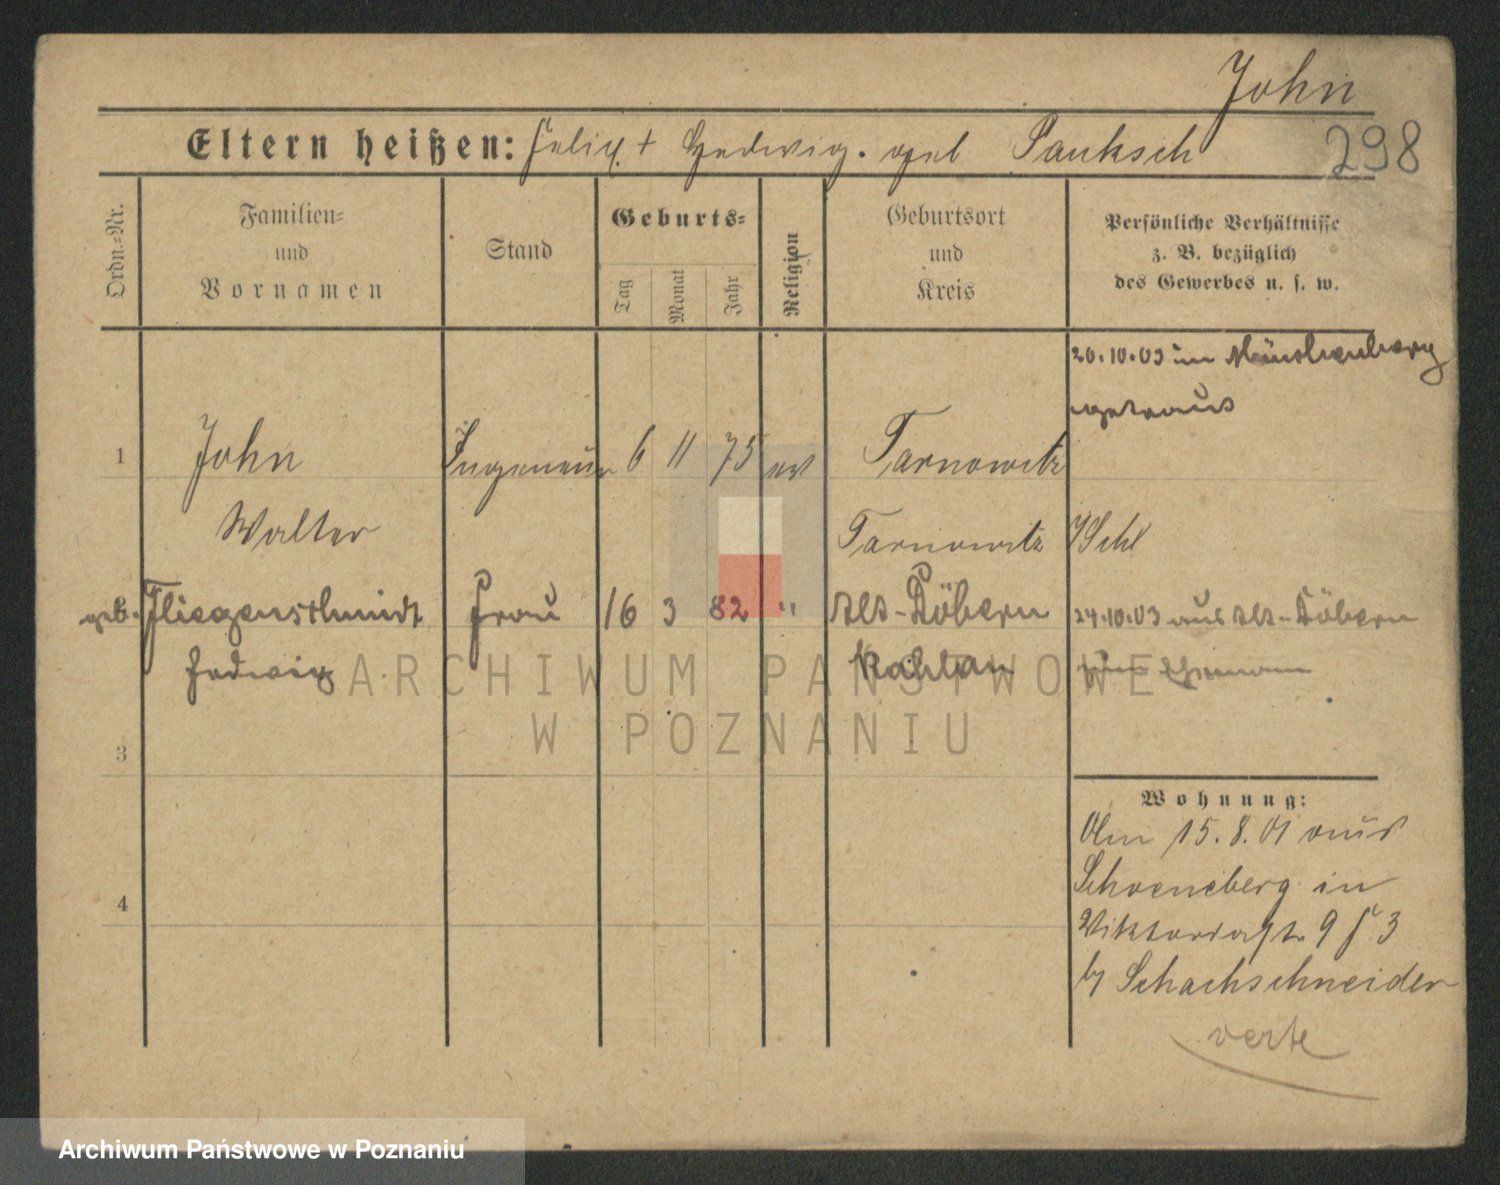 John
Eltern heißen: Felix + Hedwig. geb Pauksch
298
Ordn.=Nr.
Familien=
und
Vornamen
Stand
Geburts=
Tag
Monat
Jahr
Religion
Geburtsort
und
Kreis
Persönliche Verhältnisse
z. B. bezüglich
des Gewerbes u. s. w.
20.10.03 in Müncheberg
getraut
1 John Ingenieur 6 11 75 ev Tarnowitz
Walter Tarnowitz
geb. Fliegenschmidt Frau 16 3 82 " Alt-Döbern 24.10.03 aus Alt-Döbern
Hedwig Kahlau
ARCHIWUM PAŃSTWOWE
W POZNANIU
3
Wohnung:
Am 15.8.01 aus
Schoeneberg in
Viktoriastr 9
by Schachschneider
4
verte
Archiwum Państwowe w Poznaniu